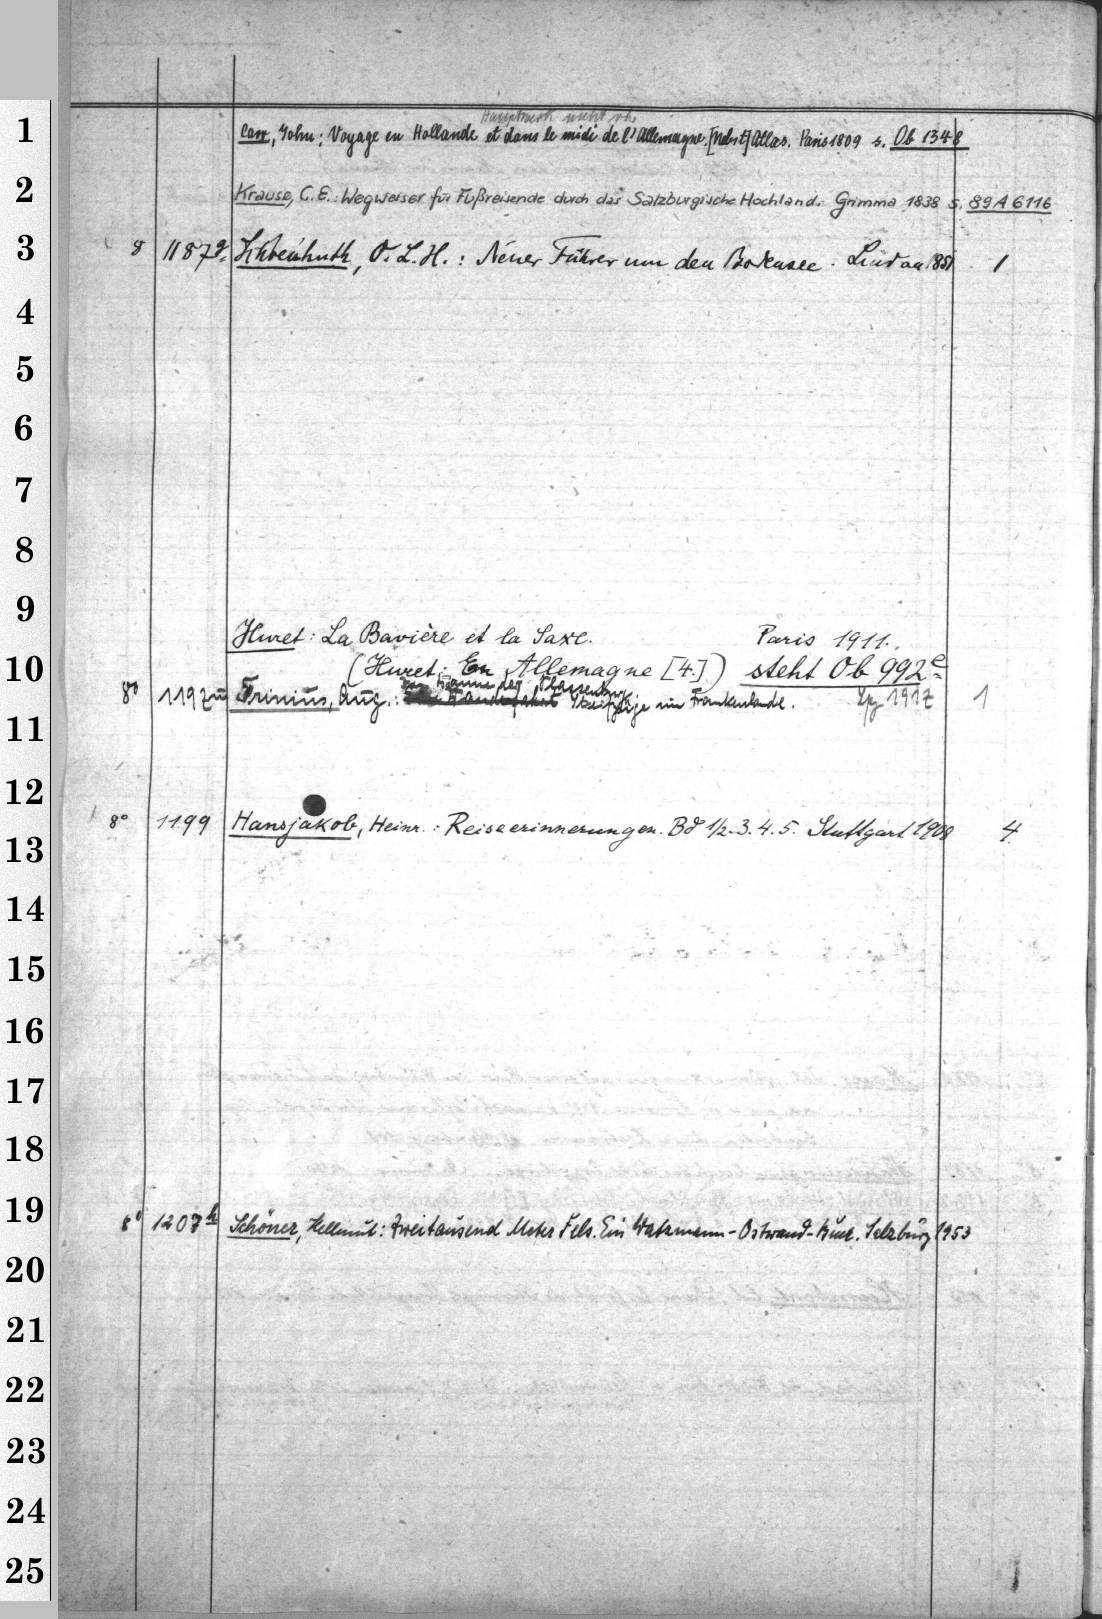 1
Hauptwerk nicht vh.
Carr, John: Voyage en Hollande et dans le midi de l'Allemagne. [Nebst] Atlas. Paris 1809 s. Ob 1348
2
Krause, C. E.: Wegweiser für Fußreisende durch das Salzburgische Hochland. Grimma 1838 s. 89 A 6116
3
8 1187g Schönhuth, O. L. H.: Neuer Führer um den Bodensee. Lindau 1851 1
4
5
6
7
8
9
Huret: La Bavière et la Saxe. Paris 1911.
10
(Huret: En Allemagne [4.]) steht Ob 992e
im Banne der Plassenburg.
8° 1197 Trinius, Aug.: Streifzüge im Frankenlande. Lpz 1917 1
11
12
8° 1199 Hansjakob, Heinr.: Reiseerinnerungen. Bd 1/2. 3. 4. 5. Stuttgart 1908 4
13
14
15
16
17
18
19
8° 1207h Schöner, Hellmut: Zweitausend Meter Fels. Ein Watzmann-Ostwand-Buch. Salzburg 1953
20
21
22
23
24
25